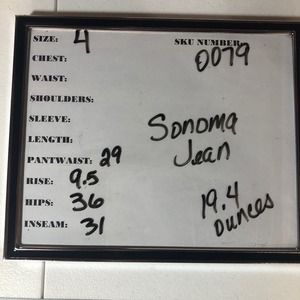 SIZE: 4
SKU NUMBER
0079
CHEST:
WAIST:
SHOULDERS:
SLEEVE:
LENGTH:
Sonoma
Jean
PANTWAIST: 29
RISE: 9.5
HIPS: 36
INSEAM: 31
19.4
ounces